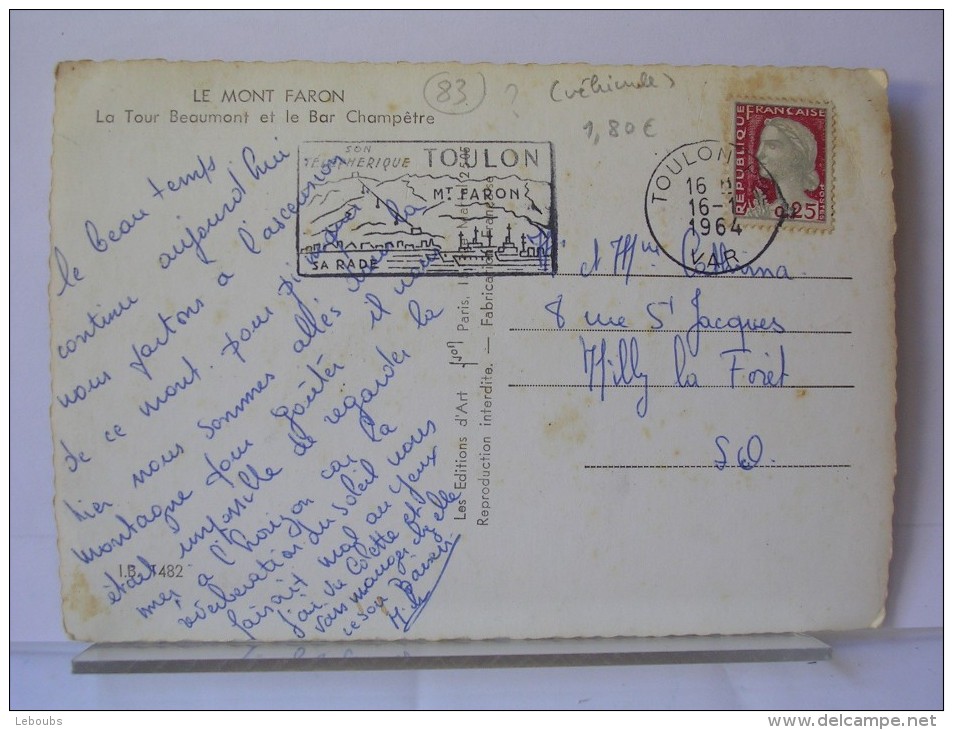 LE MONT FARON
La Tour Beaumont et le Bar Champêtre
83
?
(véhicule)
1,80 €
SON
TÉLÉPHÉRIQUE
TOULON
MT FARON
SA RADE
TOULON
16
16-1
1964
VAR
REPUBLIQUE
FRANÇAISE
0,25
POSTES
le beau temps
continue aujourd'hui
nous partons à l'ascension
de ce mont pour pique
hier nous sommes allés dans la
montagne pour goûter il nous
était impossible de regarder la
mer à l'horizon car la
réverbération du soleil nous
faisait mal au yeux
j'ai vu Colette et
vais manger chez elle
ce soir Baisers
M. et Mme
8 rue St Jacques
Milly la Forêt
S&O.
Les Editions d'Art Yvon Paris,
Reproduction interdite. — Fabrication Française
I.B. 1482
Leboubs
delcampe.net